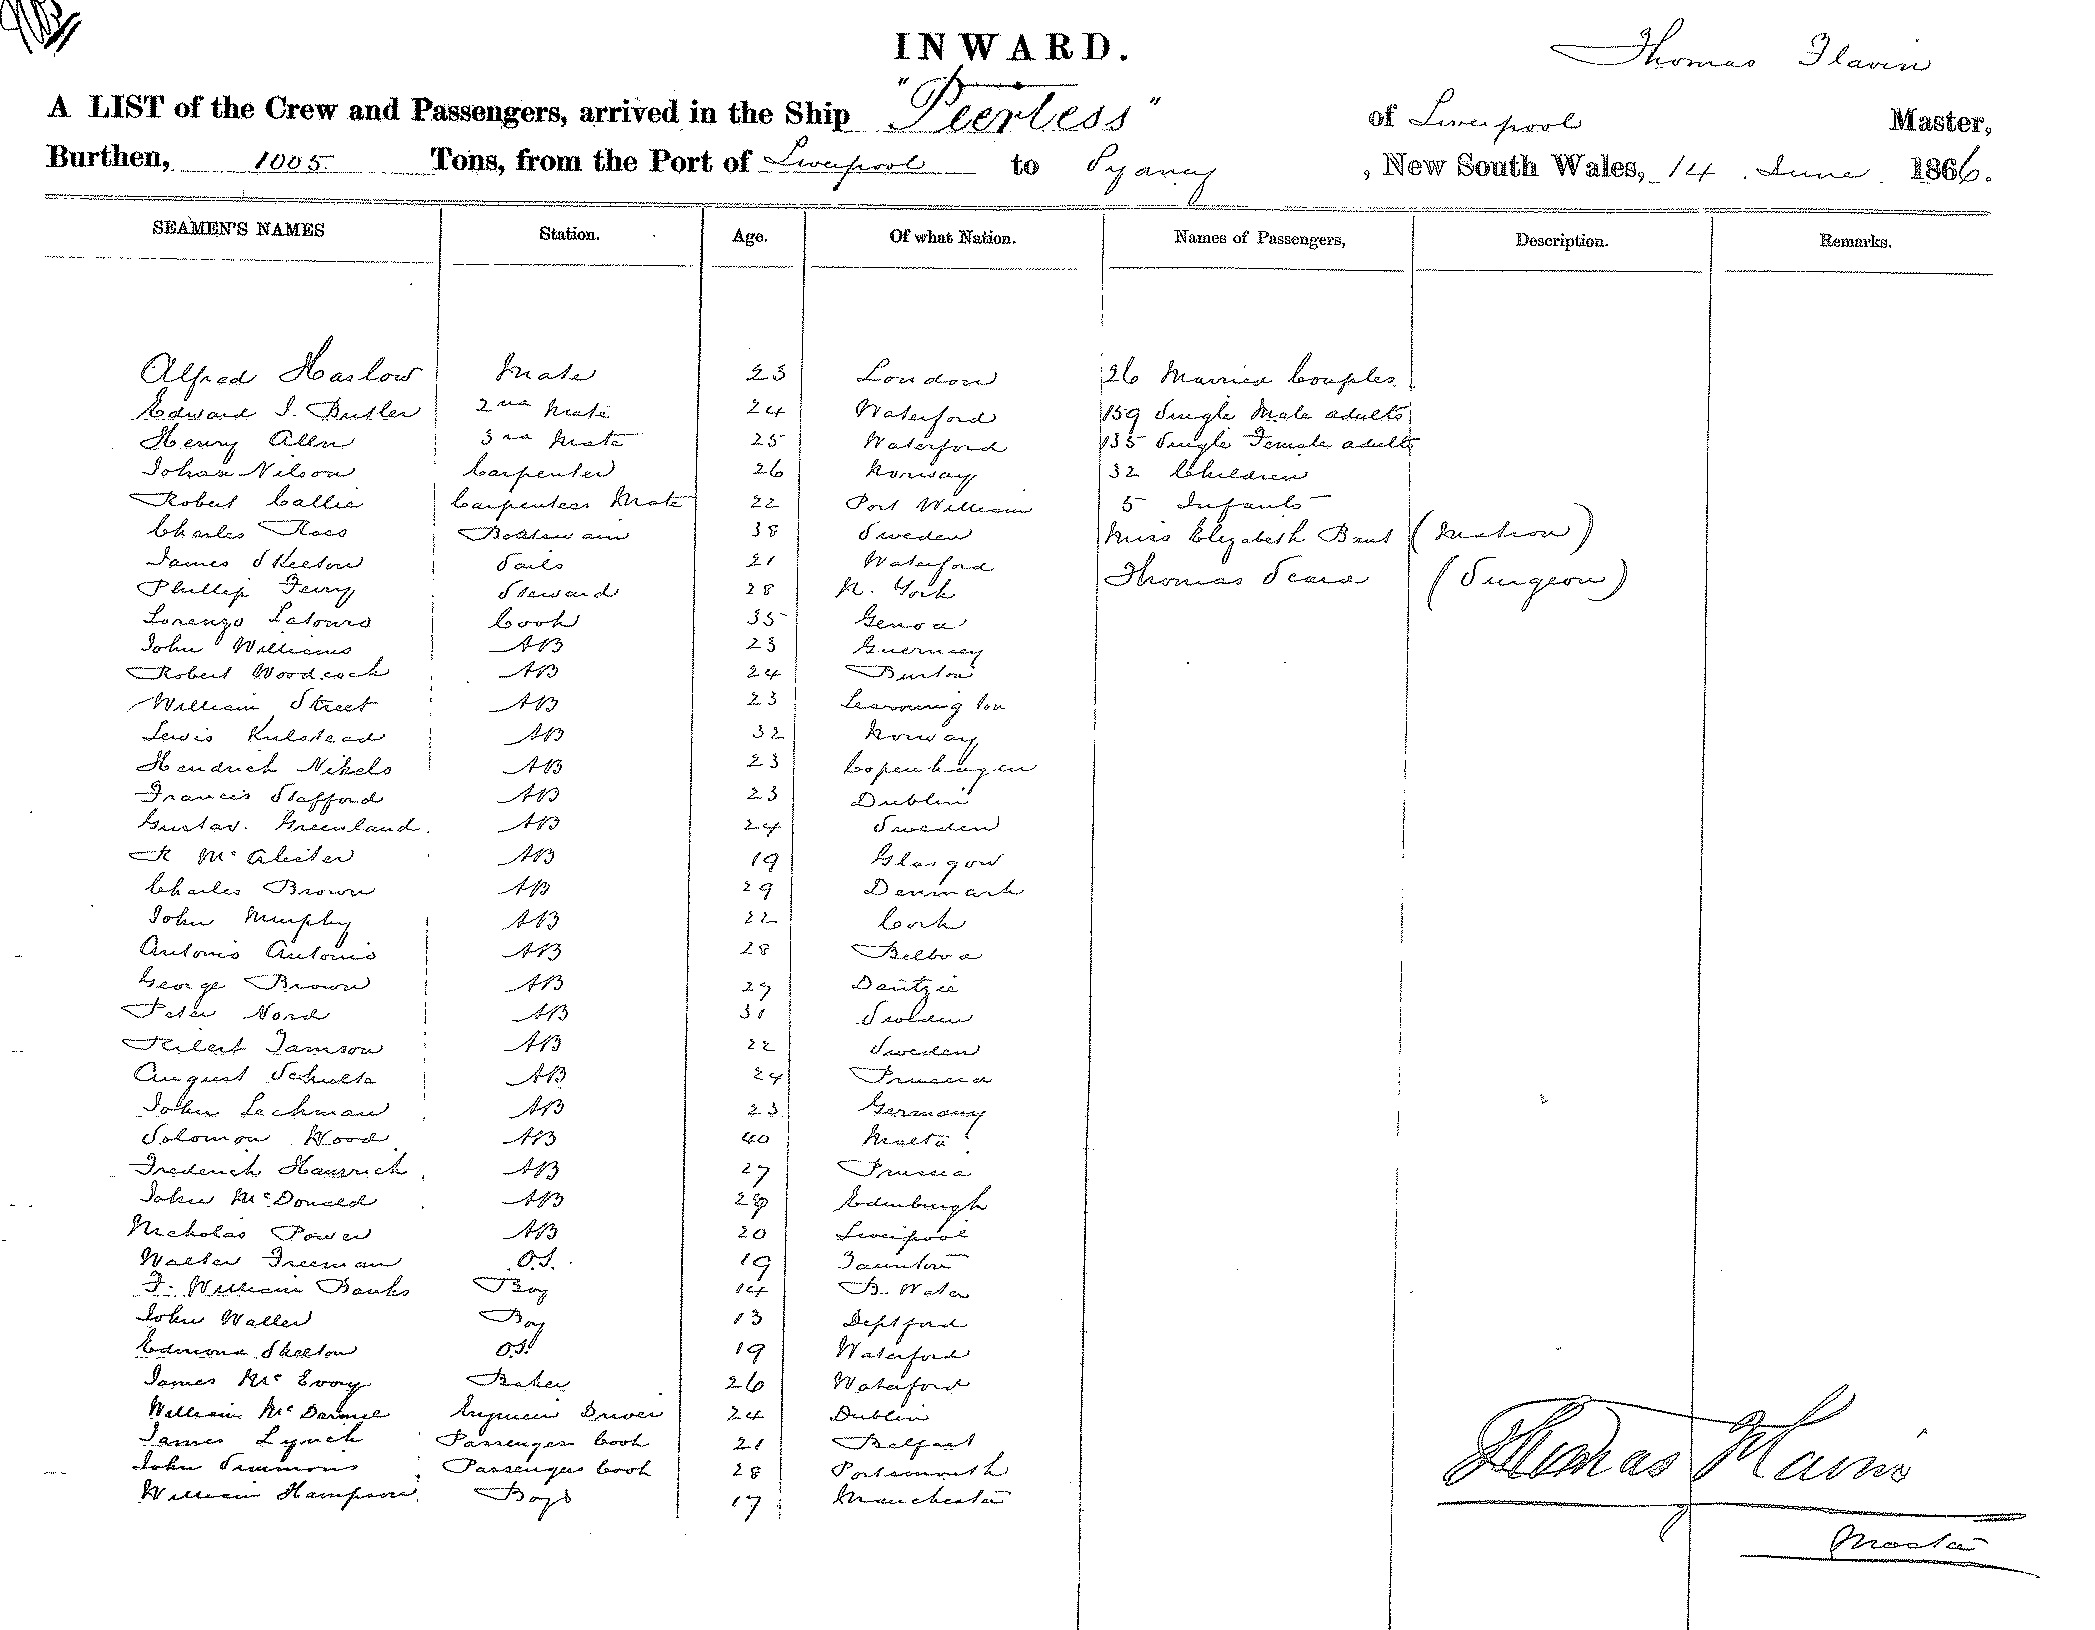 INWARD.
Thomas Flavin
A LIST of the Crew and Passengers, arrived in the Ship "Peerless" of Liverpool Master,
Burthen, 1005 Tons, from the Port of Liverpool to Sydney, New South Wales, 14 June 1866.
SEAMEN'S NAMES Station. Age. Of what Nation. Names of Passengers, Description. Remarks.
Alfred Haslow Mate 23 London 26 Married Couples
Edward J. Butler 2nd Mate 24 Waterford 159 Single Male adults
Henry Allen 3rd Mate 25 Waterford 135 Single Female adults
Johan Nilson Carpenter 26 Norway 32 Children
Robert Callie Carpenters Mate 22 Port William 5 Infants
Charles Ross Boatswain 38 Sweden Miss Elizabeth Bent (Matron)
James Skelton Sails 21 Waterford Thomas (Surgeon)
Phillip Ferry Steward 28 N. York
Lorenzo Latouro Cook 35 Genoa
John Williams AB 23 Guernsey
Robert Woodcock AB 24 Burton
William Street AB 23 Leamington
Lewis Kulstead AB 32 Norway
Hendrich Nikels AB 23 Copenhagen
Francis Stafford AB 23 Dublin
Gustav. Greenland. AB 24 Sweden
R McAlister AB 19 Glasgow
Charles Brown AB 29 Denmark
John Murphy AB 22 Cork
Antonio Antonio AB 28 Belboa
George Brown AB 29 Dantzic
Peter Nord AB 31 Sweden
Jamson AB 22 Sweden
August Schulte AB 24 Prussia
John Lechman AB 23 Germany
Solomon Wood AB 40 Malta
Frederich Hausrich AB 27 Prussia
John McDonald AB 28 Edinburgh
Nicholas Power AB 20 Liverpool
Walter Freeman O.S. 19 Taunton
F. William Banks Boy 14 B. Water
John Waller Boy 13 Deptford
Edmond Skelton O.S. 19 Waterford
James McEvoy Baker 26 Waterford
William McDarmel Engineer Driver 24 Dublin
James Lynch Passengers Cook 21 Belfast
John Simmons Passengers Cook 28 Portsmouth
William Hampson Boys 17 Manchester
Thomas Flavin
Master